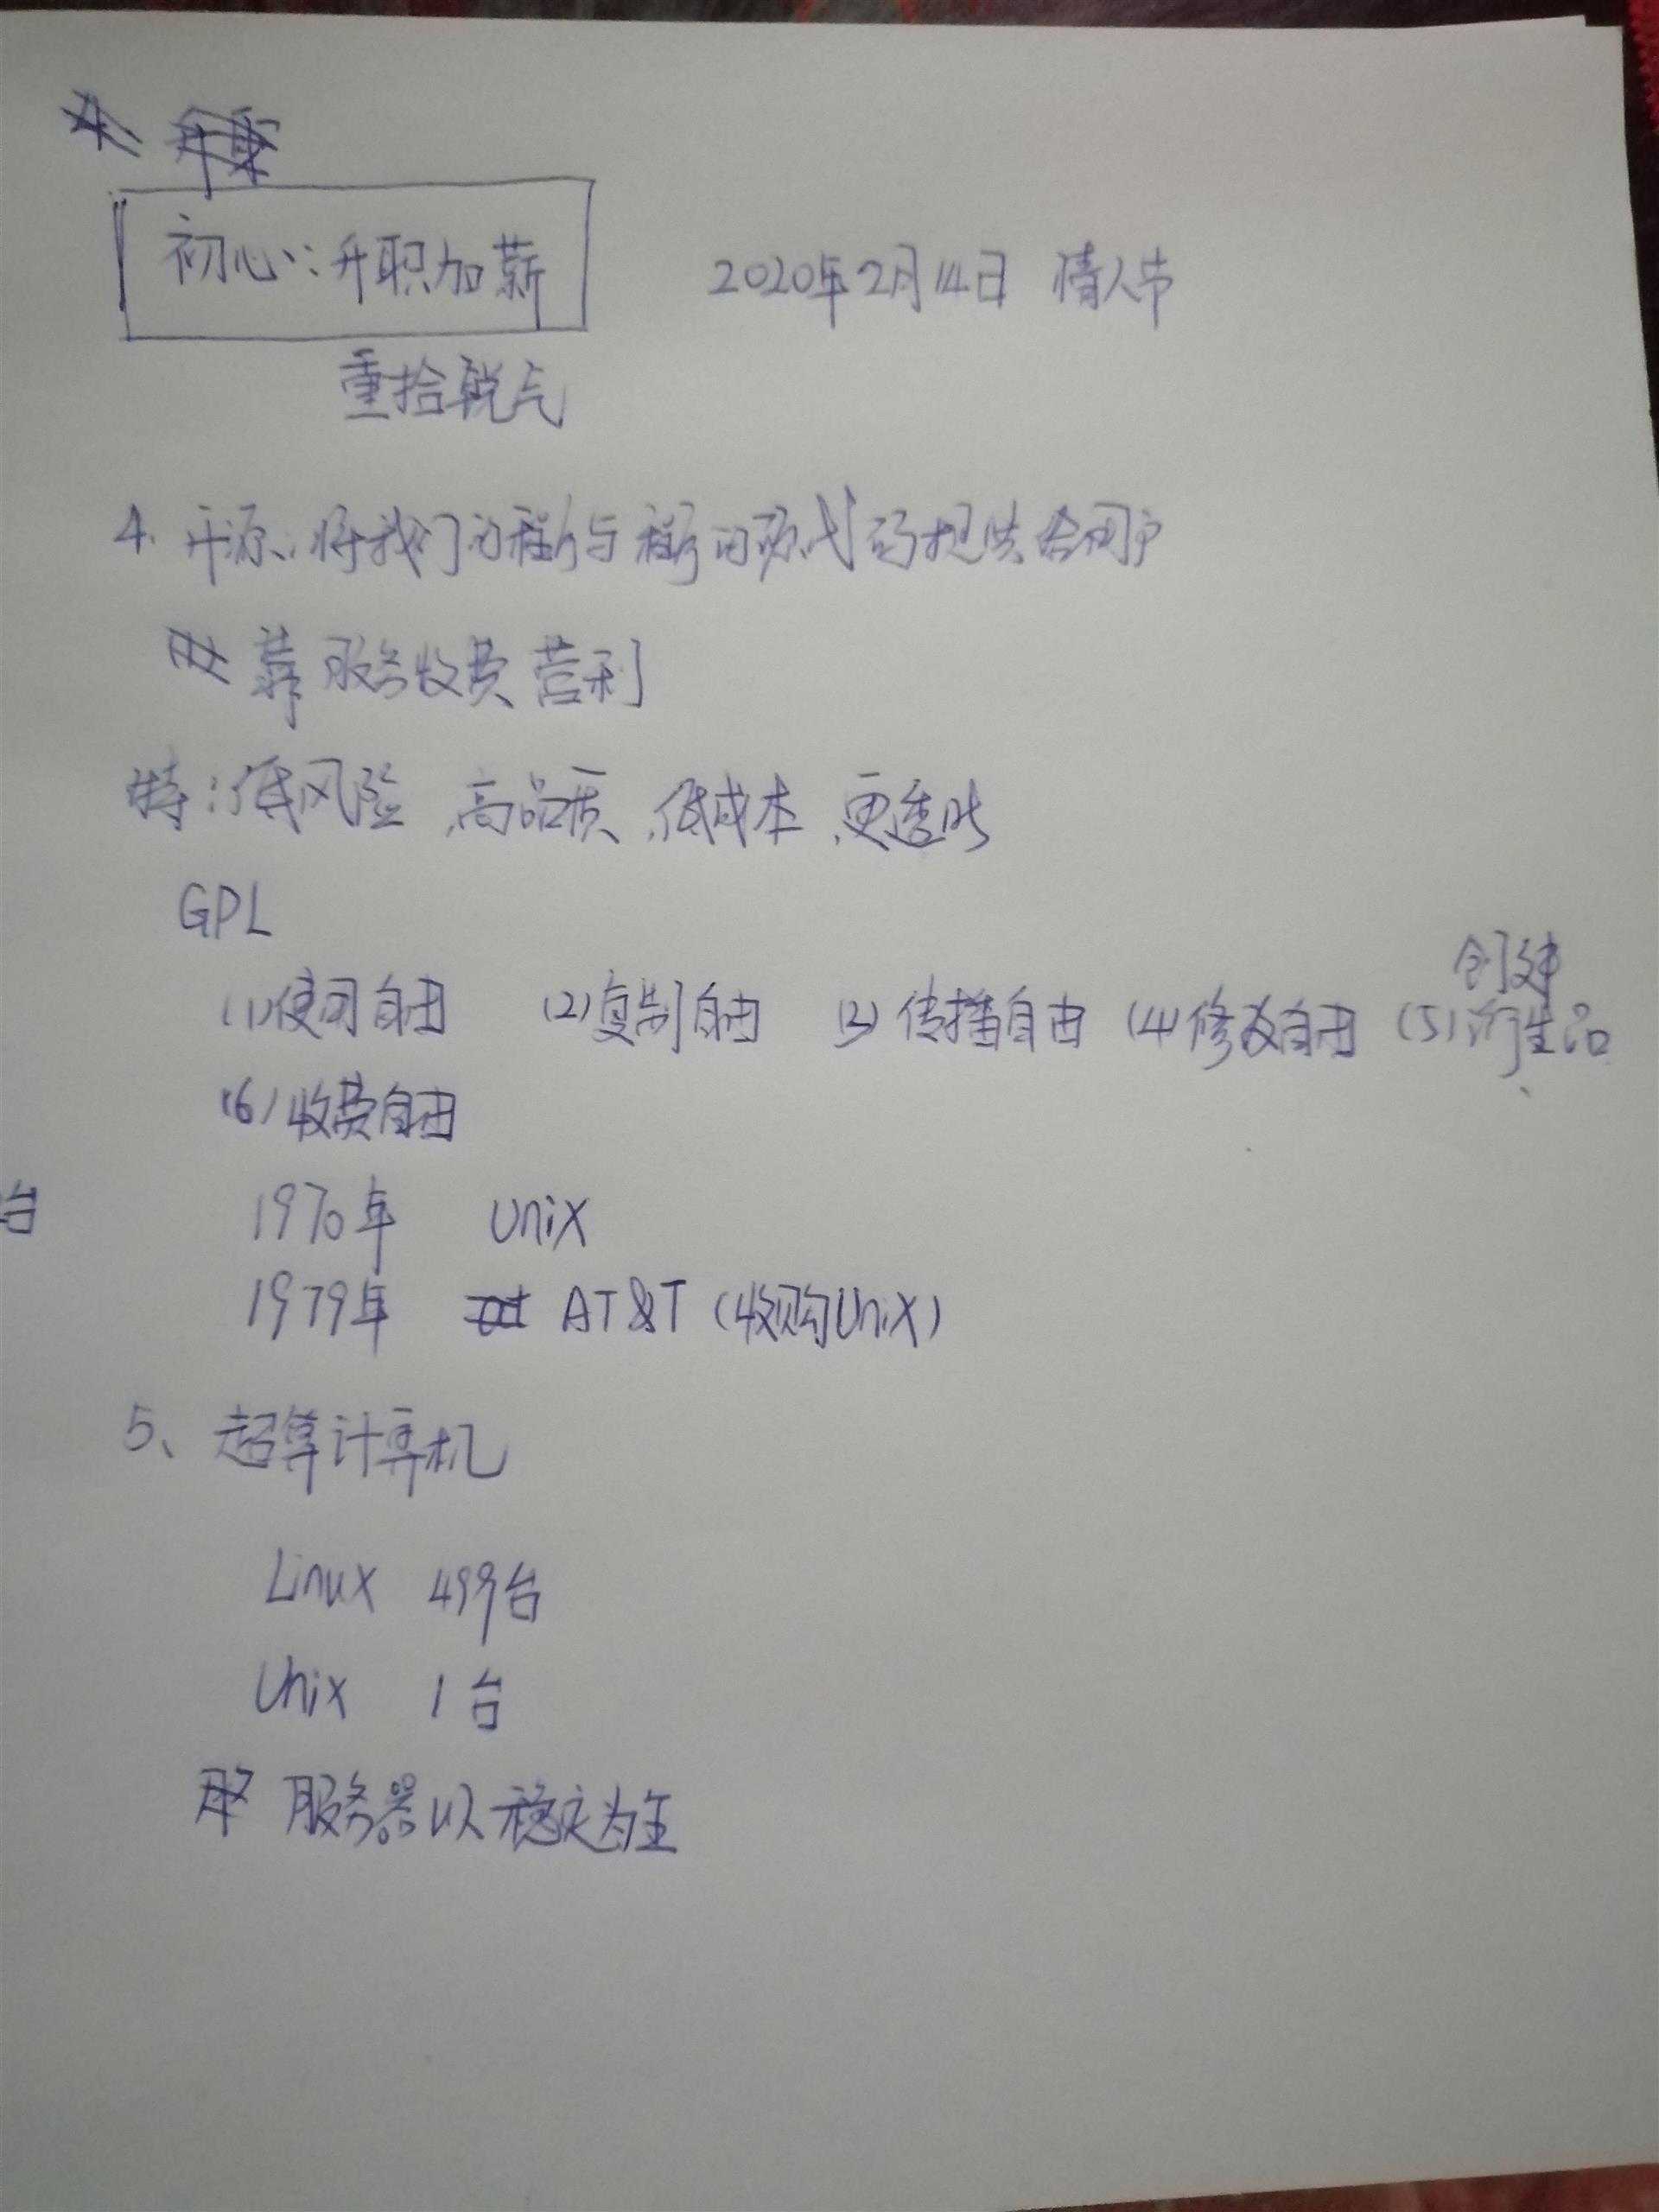 初心:升职加薪 2020年2月14日 情人节
重拾锐气
4. 开源:将我们的程序与程序的源代码提供给用户
靠服务收费营利
特:低风险、高品质、低成本、更透明
GPL
创建
(1)使用自由 (2)复制自由 (3)传播自由 (4)修改自由 (5)衍生品
(6)收费自由
台 1970年 Unix
1979年 AT&T(收购Unix)
5、超算计算机
Linux 499台
Unix 1台
服务器以稳定为主